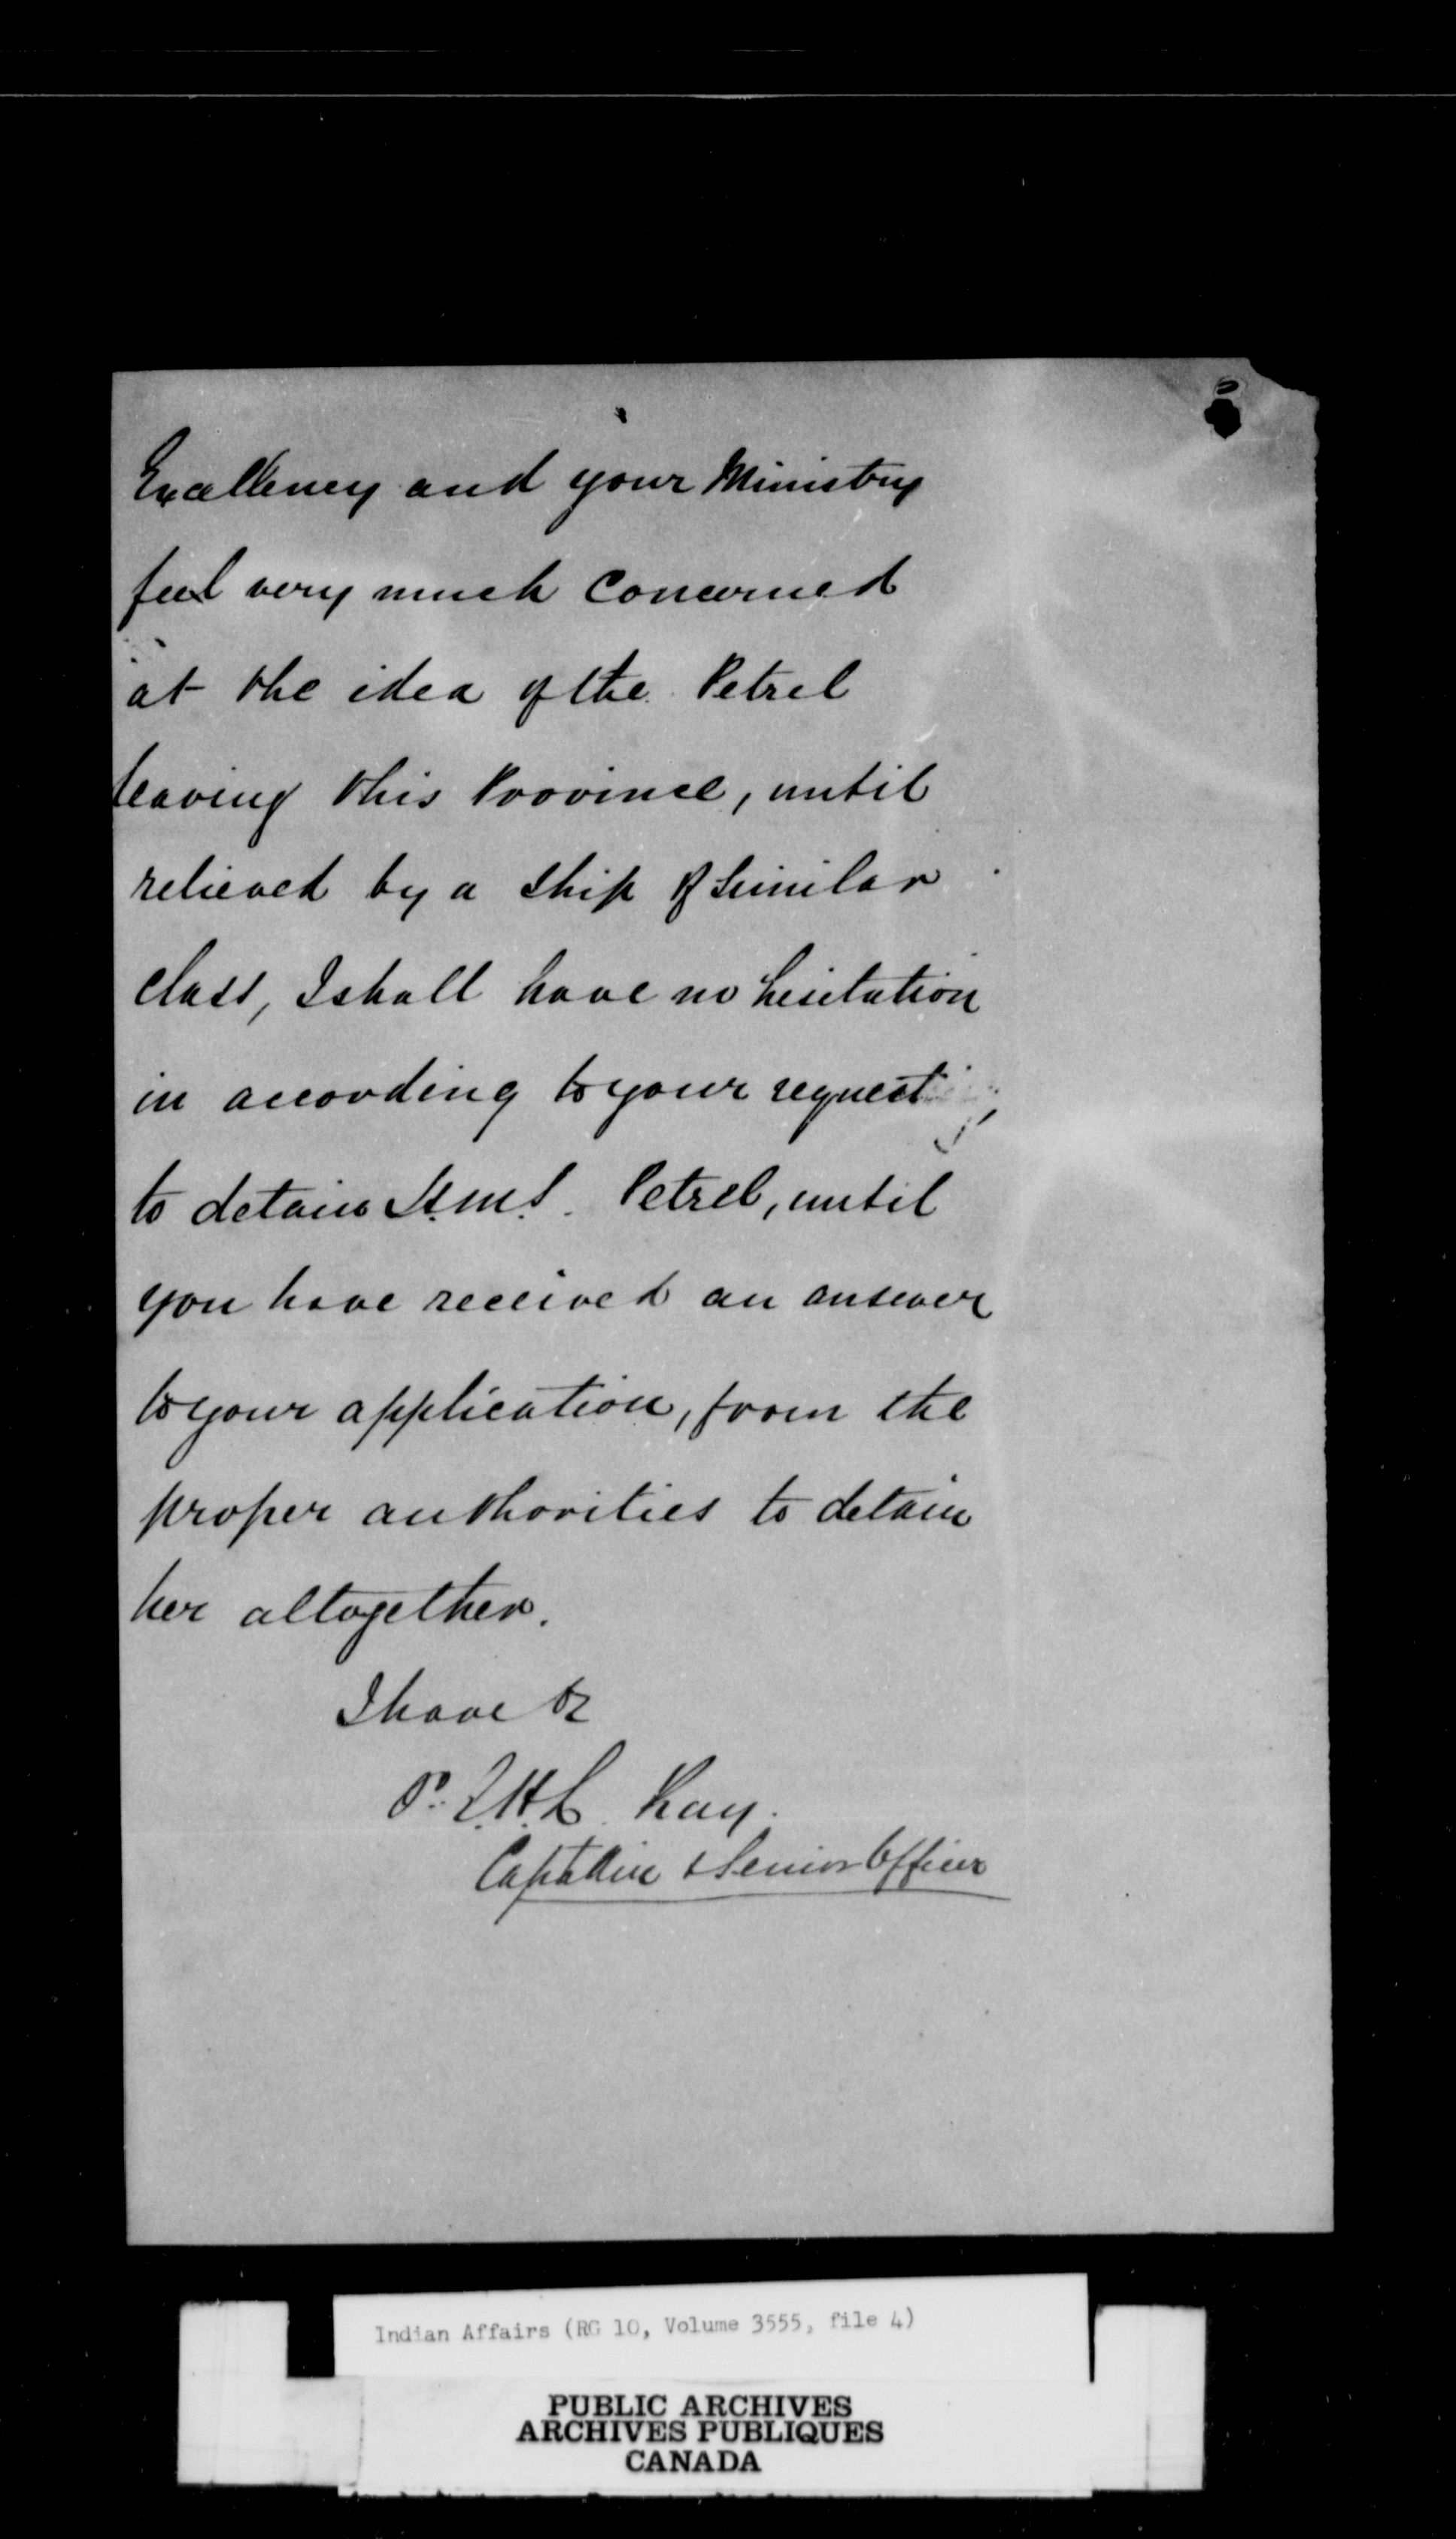 Excellency and your Ministry
feel very much concerned
at the idea of the Petrel
leaving this Province, until
relieved by a ship of similar
class, I shall have no hesitation
in according to your request
to detain H.M.S. Petrel, until
you have received an answer
to your application, from the
proper authorities to detain
her altogether.
I have &c
Kay.
Captain & Senior Officer
Indian Affairs (RG 10, Volume 3555, file 4)
PUBLIC ARCHIVES
ARCHIVES PUBLIQUES
CANADA